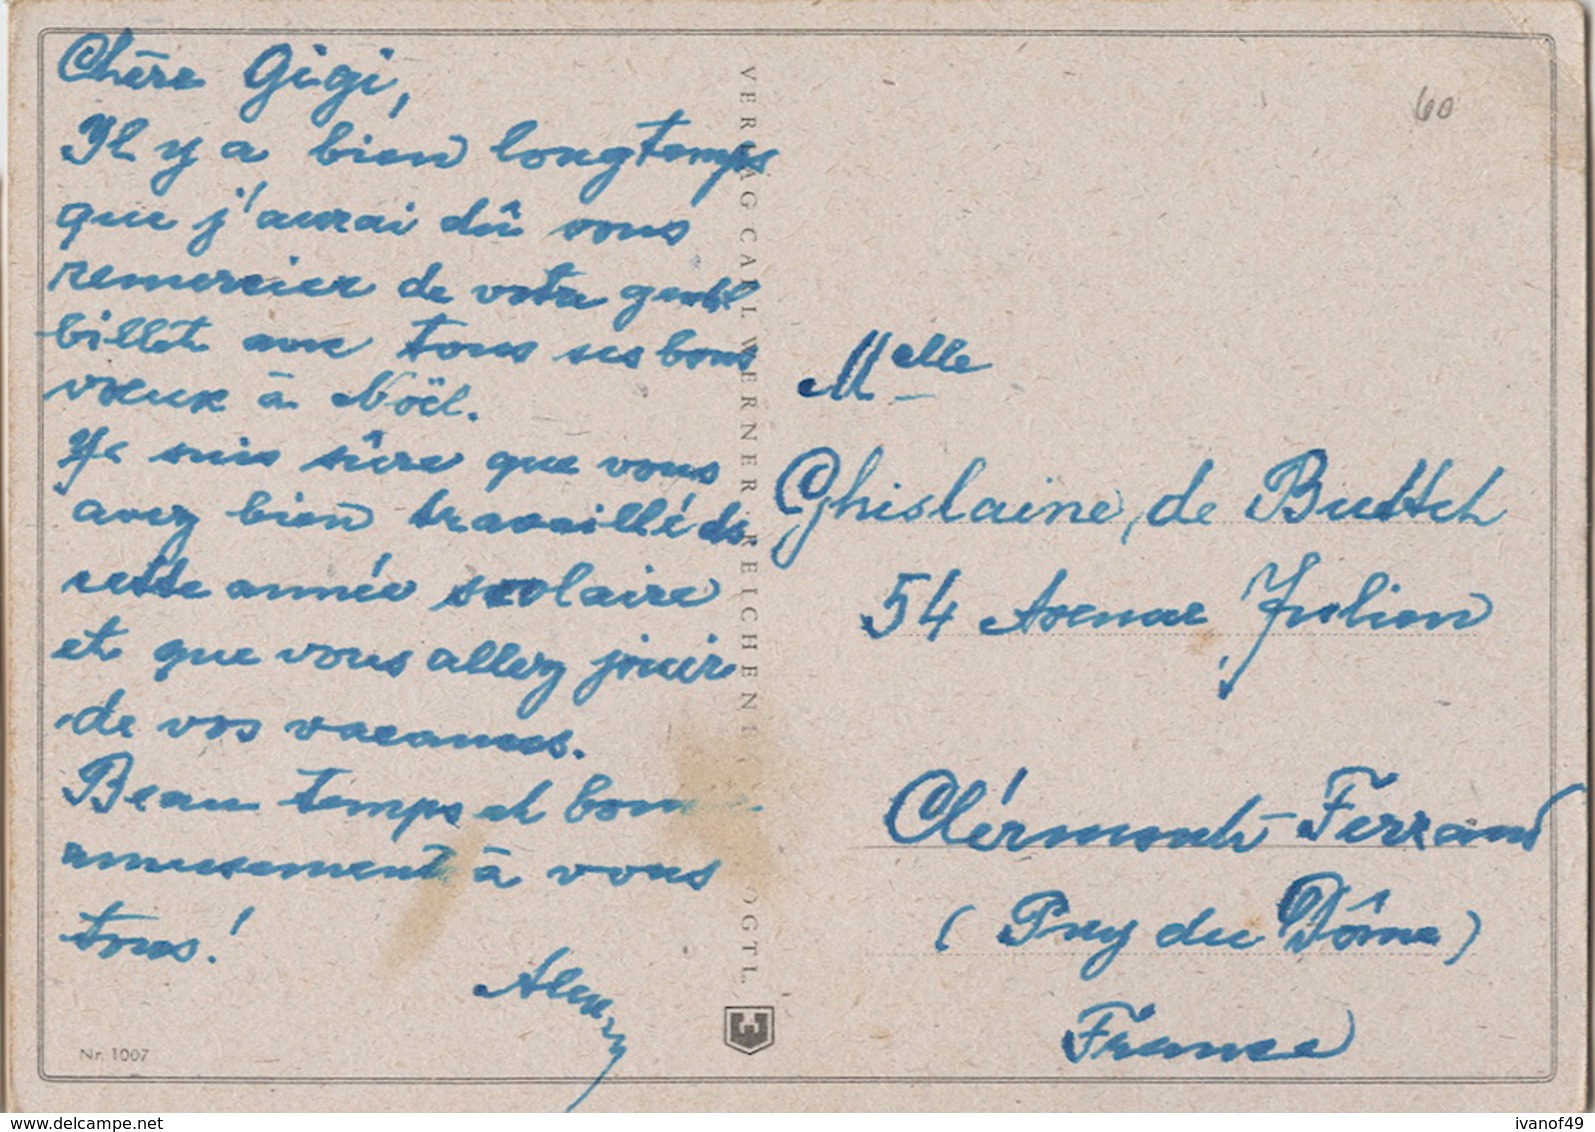 Chère Gigi,
Il y a bien longtemps
que j'aurai dû vous
remercier de votre gentil
billet avec tous ses bons
vœux à Noël.
Je suis sûre que vous
avez bien travaillé ds
cette année scolaire
et que vous allez jouir
de vos vacances.
Beau temps et bonne
amusement à vous
tous!
Nr. 1007
VERLAG CARL WERNER, REICHENB OGTL.
60
Melle
Ghislaine de
54 Avenue Julien
Clérmont-Ferrand
(Puy du Dôme)
France
www.delcampe.net
ivanof49